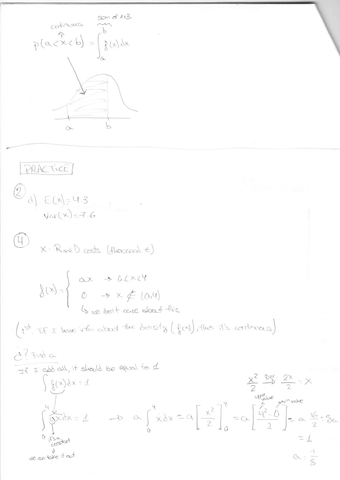 continuous
p(a<x<b) = ∫ₐᵇ f(x)dx
a b
PRACTICE
②
d) E(x)=4.3
Var(x)=7.6
④
X: R and D costs (thousand €)
f(x) = { ax → 0<x<4
0 → x ∉ (0,4)
↳ we don't care about this
(1st If I have info about the density f(x), then it's continuous)
c) Find a
If I add all, it should be equal to 1
∫ f(x)dx = 1
x²/2 → 2x/2 = x
∫₀⁴ axdx = 1 → a ∫₀⁴ xdx = a [x²/2]₀⁴ = a [4²-0/2] = a 16/2 = 8a
= 1
constant
we can take it out
a = 1/8